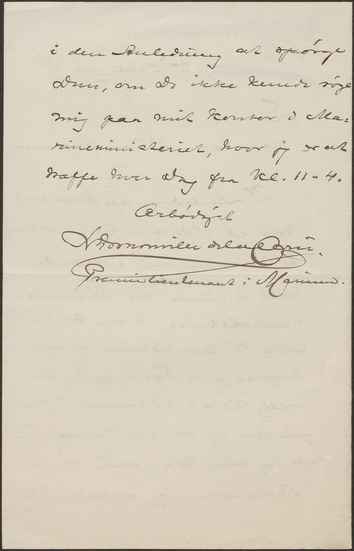 i den Anledning at spørge
Dem, om De ikke kunde søge
mig paa mit Kontor i Ma-
rineministeriet, hvor jeg er at
træffe hver Dag fra Kl. 11-4.
Ærbødigst
Premierlieutenant i Marinen.